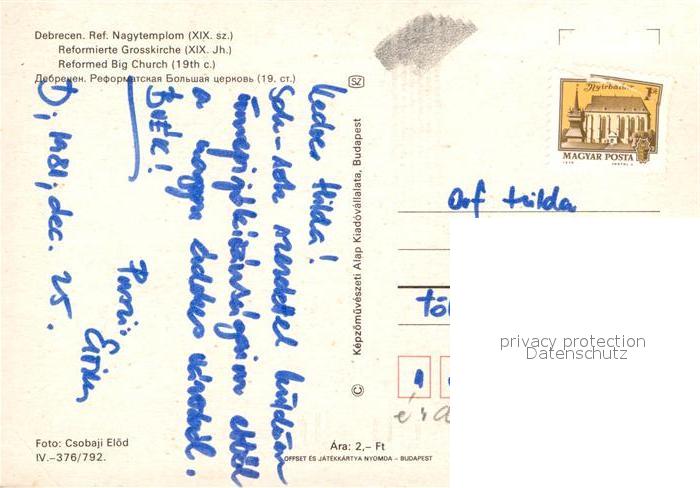 Debrecen. Ref. Nagytemplom (XIX. sz.)
Reformierte Grosskirche (XIX. Jh.)
Reformed Big Church (19th c.)
Дебрецен. Реформатская Большая церковь (19. ст.)
SZ
Kedves Hilda!
Sok-sok szeretettel küldöm
ünnepi jókívánságaim ebből
a nagyon érdekes városból.
BUÉK!
D, 1981, dec. 25.
Puszi:
© Képzőművészeti Alap Kiadóvállalata, Budapest
Nyírbátor
1 Ft
MAGYAR POSTA
Hilda
Foto: Csobaji Előd
IV.–376/792.
Ára: 2,– Ft
OFFSET ÉS JÁTÉKKÁRTYA NYOMDA – BUDAPEST
privacy protection
Datenschutz